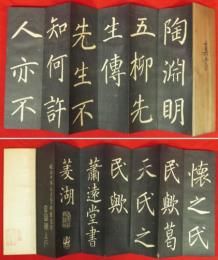 陶淵明
五柳先
生傳
先生不
知何許
人亦不
懷之氏
民歟葛
天氏之
民歟
蕭遠堂書
菱湖